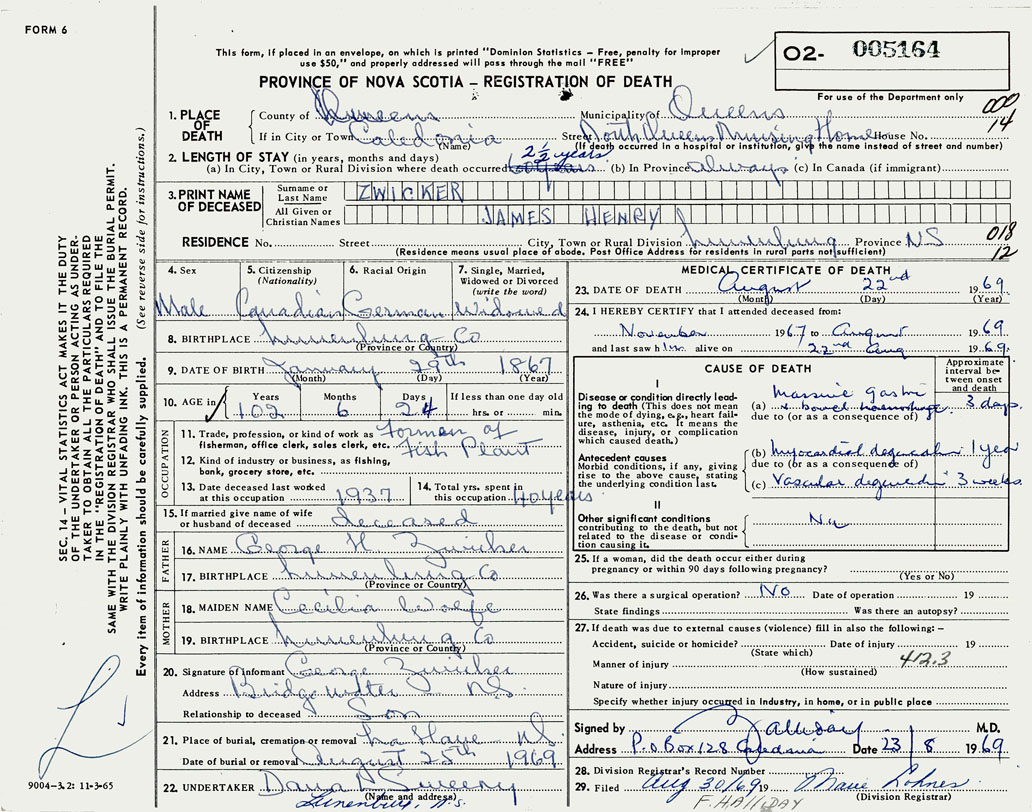 FORM 6
This form, if placed in an envelope, on which is printed "Dominion Statistics – Free, penalty for Improper
use $50," and properly addressed will pass through the mail "FREE"
PROVINCE OF NOVA SCOTIA – REGISTRATION OF DEATH
O2- 005164
For use of the Department only
000
14
1. PLACE OF DEATH
County of Queens Municipality of Queens
If in City or Town Caledonia Street North Queens Nursing Home House No.
(Name) (If death occurred in a hospital or institution, give the name instead of street and number)
2. LENGTH OF STAY (in years, months and days) 2½ years
(a) In City, Town or Rural Division where death occurred (b) In Province always (c) In Canada (if immigrant)
3. PRINT NAME OF DECEASED
Surname or Last Name ZWICKER
All Given or Christian Names JAMES HENRY
RESIDENCE No. Street City, Town or Rural Division Lunenburg Province NS
(Residence means usual place of abode. Post Office Address for residents in rural parts not sufficient)
018
12
4. Sex Male
5. Citizenship (Nationality) Canadian
6. Racial Origin German
7. Single, Married, Widowed or Divorced (write the word) Widowed
8. BIRTHPLACE Lunenburg Co
(Province or Country)
9. DATE OF BIRTH January 29th 1867
(Month) (Day) (Year)
10. AGE in Years 102 Months 6 Days 24 If less than one day old hrs. or min.
OCCUPATION
11. Trade, profession, or kind of work as fisherman, office clerk, sales clerk, etc. Formen of
12. Kind of industry or business, as fishing, bank, grocery store, etc. Fish Plant
13. Date deceased last worked at this occupation 1937
14. Total yrs. spent in this occupation 40 years
15. If married give name of wife or husband of deceased deceased
FATHER
16. NAME George H Zwicker
17. BIRTHPLACE Lunenburg Co
(Province or Country)
MOTHER
18. MAIDEN NAME Cecilia Wolfe
19. BIRTHPLACE Lunenburg Co
(Province or Country)
20. Signature of informant George Zwicker
Address Bridgewater N.S.
Relationship to deceased Son
21. Place of burial, cremation or removal La Have N.S.
Date of burial or removal August 25th 1969
22. UNDERTAKER Dana Sweeny
(Name and address)
Lunenburg, N.S.
MEDICAL CERTIFICATE OF DEATH
23. DATE OF DEATH August 22nd 1969
(Month) (Day) (Year)
24. I HEREBY CERTIFY that I attended deceased from:
November 1967 to August 1969
and last saw him alive on 22nd Aug 1969.
CAUSE OF DEATH
Approximate interval between onset and death
I
Disease or condition directly leading to death (This does not mean the mode of dying, e.g., heart failure, asthenia, etc. It means the disease, injury, or complication which caused death.)
Massive Gastri
(a) & bowel haemorrhage 3 days.
due to (or as a consequence of)
Antecedent causes
Morbid conditions, if any, giving rise to the above cause, stating the underlying condition last.
(b) Myocardial degeneration 1 year
due to (or as a consequence of)
(c) Vascular degenerati 3 weeks
II
Other significant conditions contributing to the death, but not related to the disease or condition causing it.
25. If a woman, did the death occur either during pregnancy or within 90 days following pregnancy?
(Yes or No)
26. Was there a surgical operation? No Date of operation 19
State findings Was there an autopsy?
27. If death was due to external causes (violence) fill in also the following: –
Accident, suicide or homicide? Date of injury 19
(State which)
Manner of injury 412.3
(How sustained)
Nature of injury
Specify whether injury occurred in Industry, in home, or in public place
Signed by Halliday M.D.
Address P.O Box 128 Caledonia Date 23 / 8 1969
28. Division Registrar's Record Number
29. Filed Aug 30/69 19 Marie Lohnes
(Division Registrar)
F. HALLIDAY
SEC. 14 – VITAL STATISTICS ACT MAKES IT THE DUTY
OF THE UNDERTAKER OR PERSON ACTING AS UNDER-
TAKER TO OBTAIN ALL THE PARTICULARS REQUIRED
IN THE "REGISTRATION OF DEATH" AND TO FILE THE
SAME WITH THE DIVISION REGISTRAR WHO SHALL ISSUE THE BURIAL PERMIT.
WRITE PLAINLY WITH UNFADING INK. THIS IS A PERMANENT RECORD.
Every item of information should be carefully supplied. (See reverse side for instructions.)
9004-3.2: 11-3-65